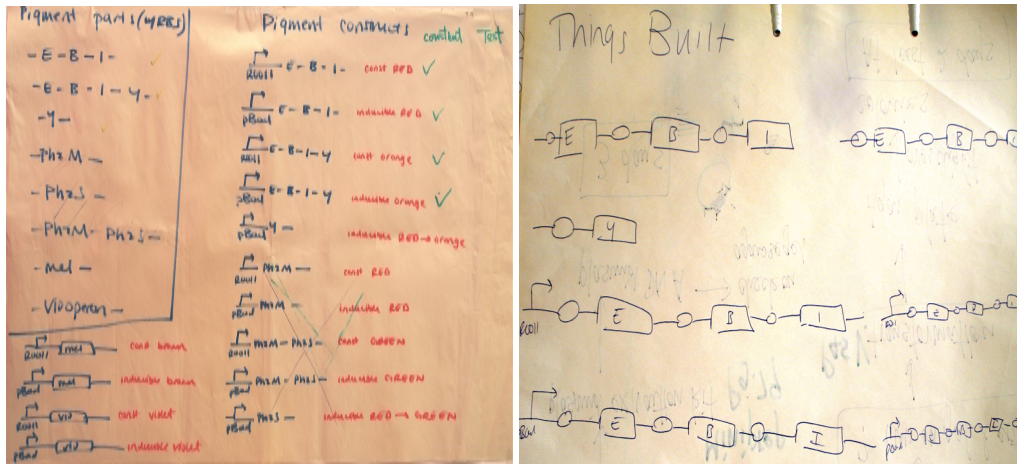 Pigment parts (4RBS)
- E - B - I -
- E - B - I - Y -
- Y -
- PhzM -
- PhzS -
- PhzM - PhzS -
- mel -
- Vioperon -
R0011 mel const brown
pBad mel inducible brown
R0011 vio const violet
pBad vio inducible violet
Pigment constructs construct Test
R0011 E - B - I - const RED ✓
pBad E - B - I - inducible RED ✓
R0011 E - B - I - Y const orange ✓
pBad E - B - I - Y inducible orange ✓
pBad Y - inducible RED → orange
R0011 PhzM - const RED
pBad PhzM - inducible RED
R0011 PhzM - PhzS - const GREEN
pBad PhzM - PhzS - inducible GREEN
pBad PhzS - inducible RED → GREEN
Things Built
E B I
E B
Y
R0011 E B I
E
pBad E B I
pBad E B I